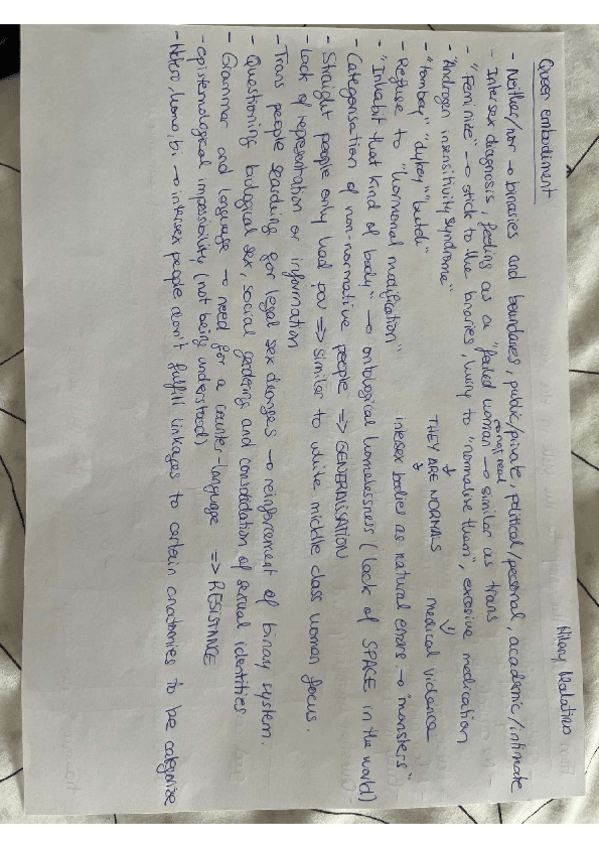 Hilary Malatino
Queer embodiment
- Neither/nor → binaries and boundaries, public/private, political/personal, academic/intimate
- Intersex diagnosis, feeling as a "failed woman → similar as trans
or not real
- "Feminize" → stick to the binaries, trying to "normalise them", excessive medication
- "Androgen insensitivity syndrome"
THEY ARE NORMALS
medical violence
- "tomboy" "dykey" "butch"
- Refuse to "hormonal modification"
intersex bodies as natural errors → "monsters"
- "Inhabit that kind of body" → ontological homelessness (lack of SPACE in the world)
- Categorisation of non-normative people ⇒ GENERALISATION
- Straight people only had pov ⇒ similar to white middle class women focus.
- Lack of representation or information
- Trans people searching for legal sex changes → reinforcement of binary system.
- Questioning biological sex, social gendering and consolidation of sexual identities
- Grammar and language → need for a counter-language ⇒ RESISTANCE
- epistemological impossibility (not being understood)
- Hetero, homo, bi → intersex people don't fulfill linkages to certain anatomies to be categorize